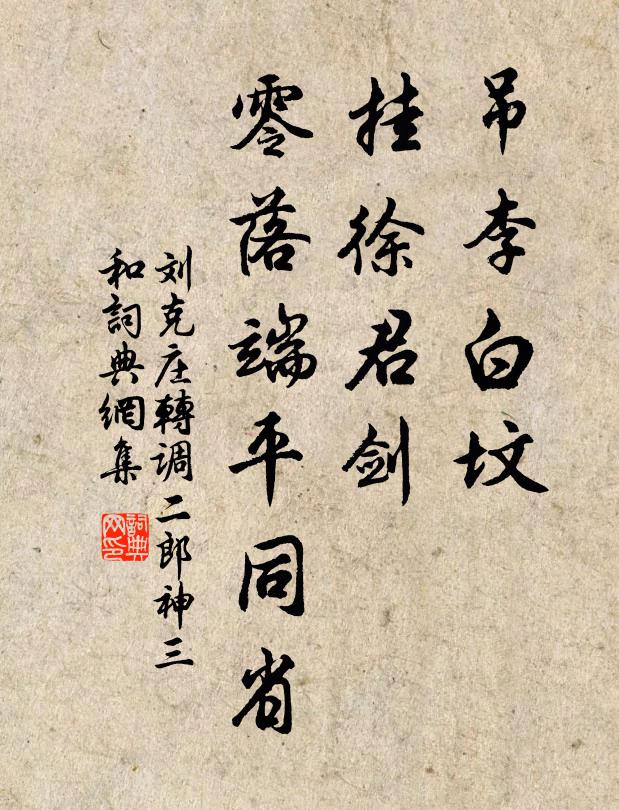 吊李白坟
挂徐君剑
零落端平同省
刘克庄轉调二郎神三
和詞典網集
詞典
网印